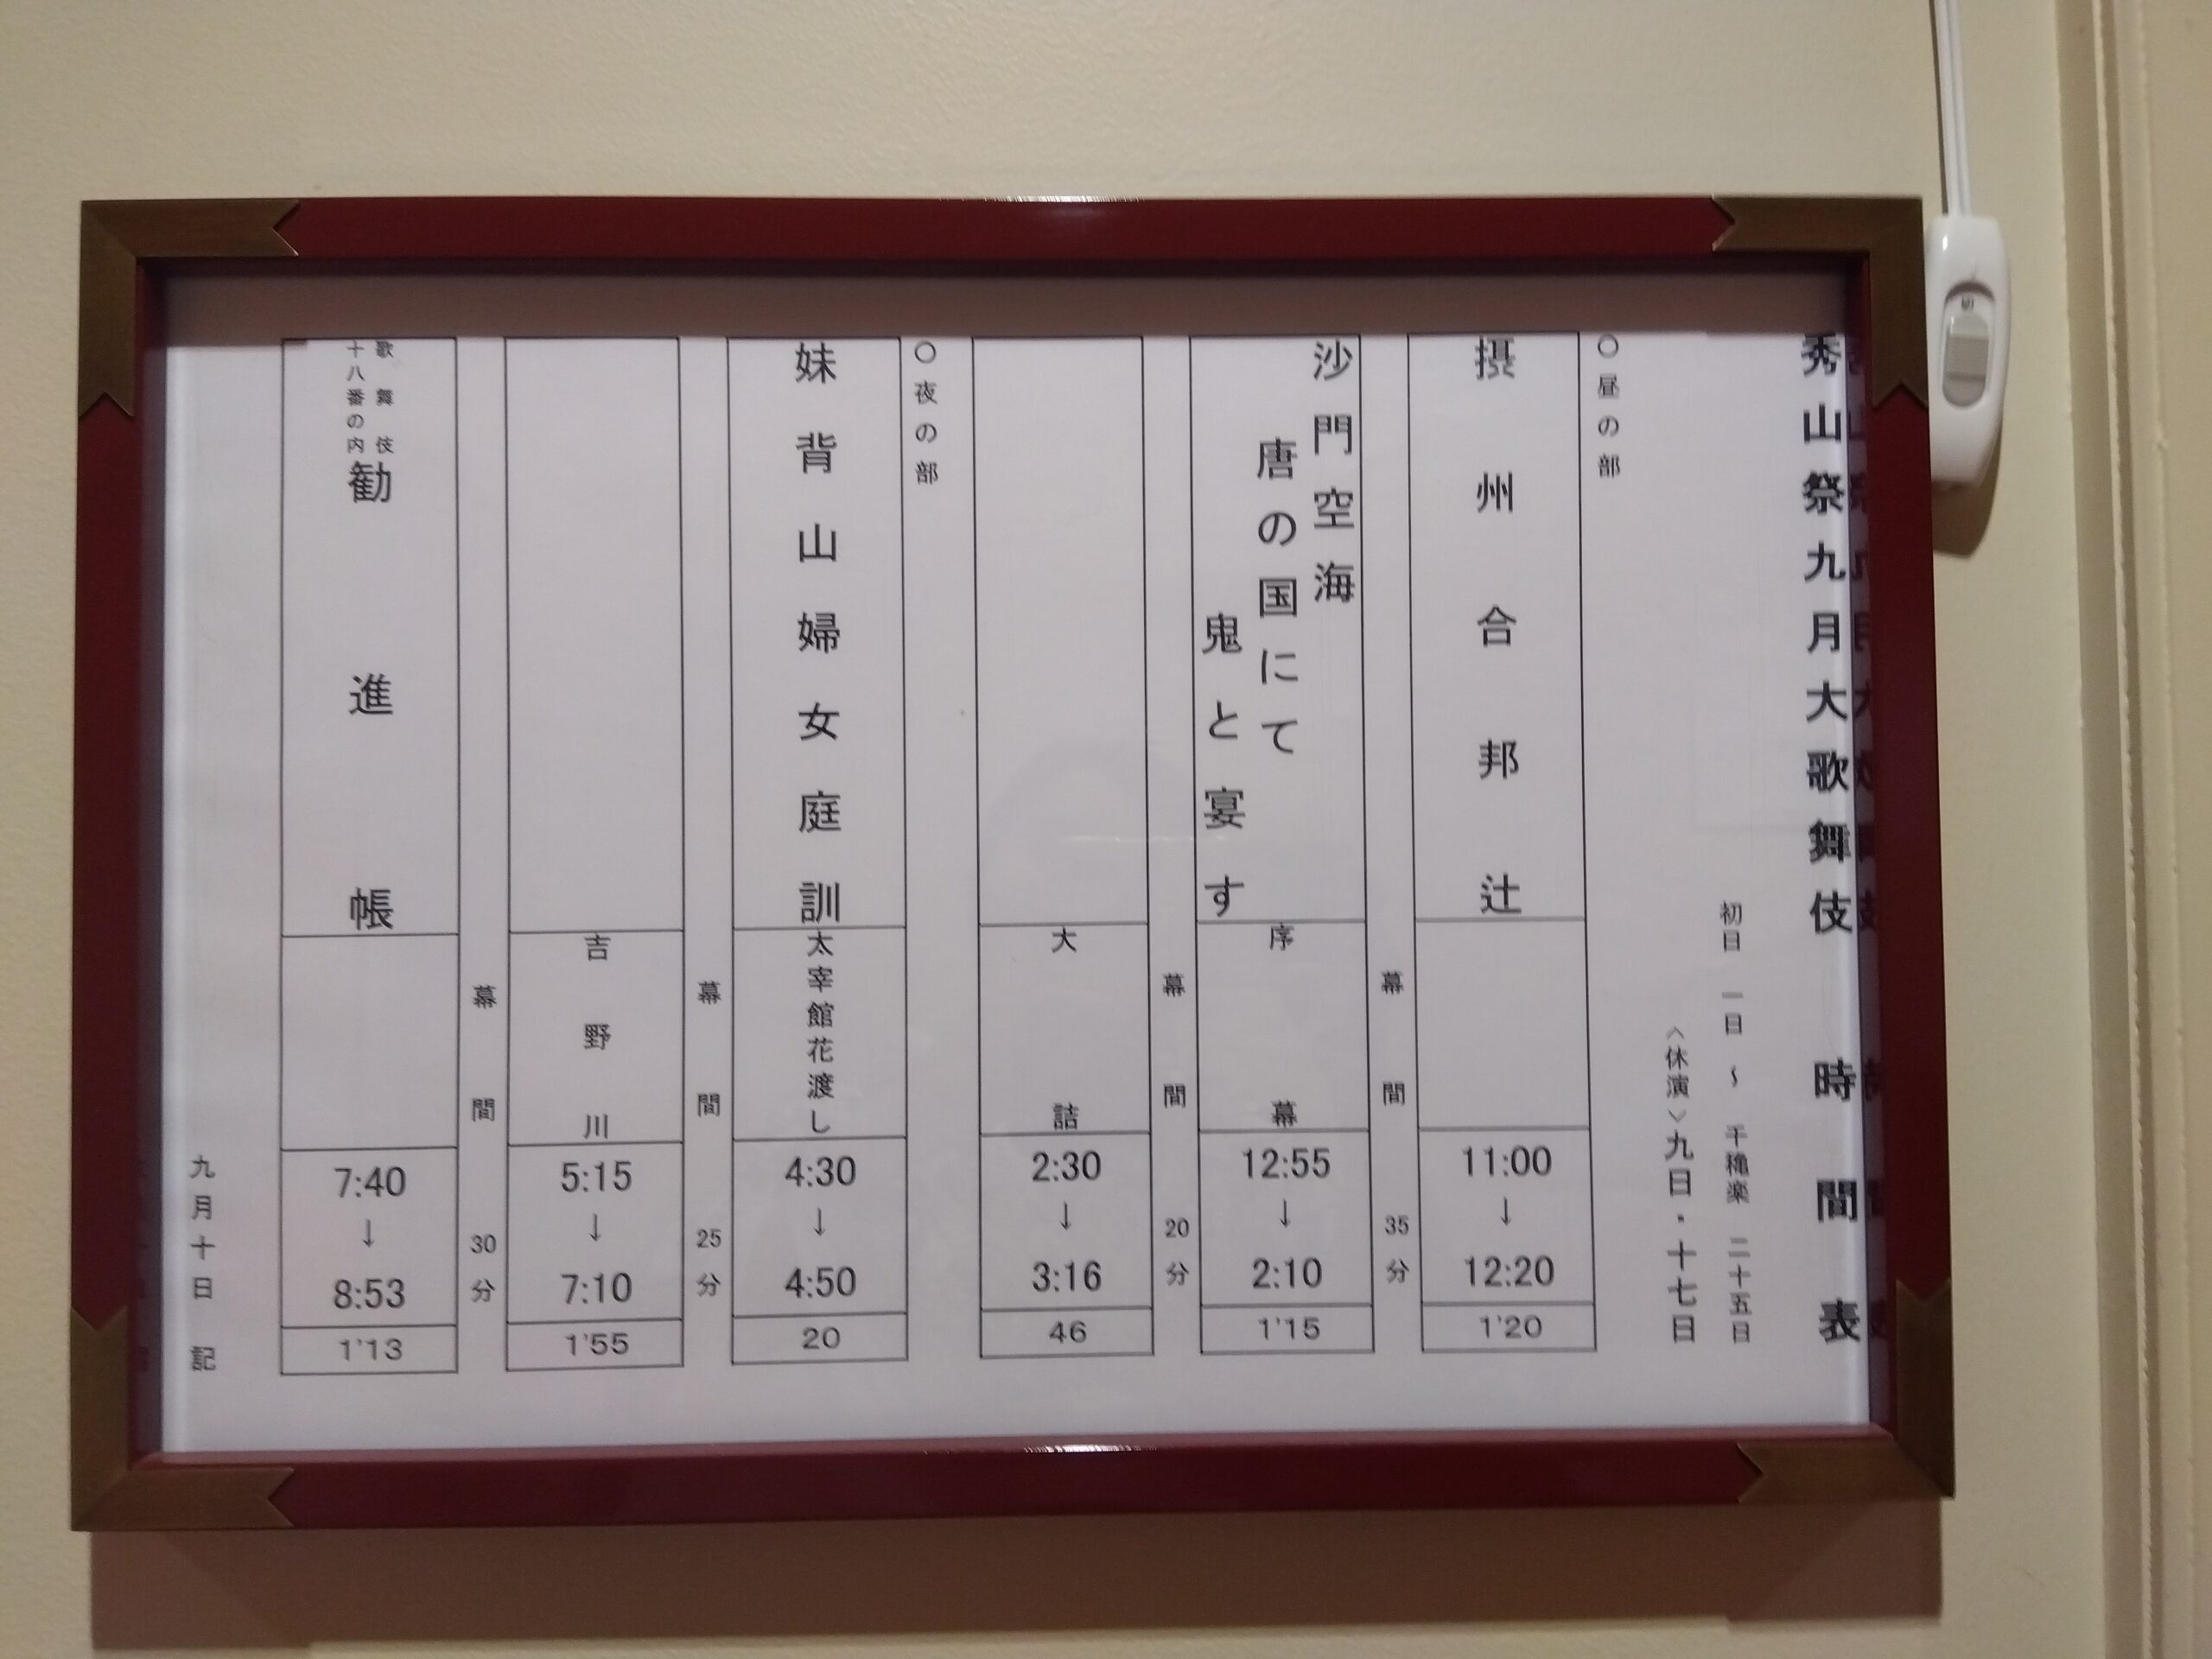 秀山祭九月大歌舞伎　時間表
初日　一日　～　千穐楽　二十五日
〈休演〉九日・十七日
〇昼の部
摂州合邦辻
11:00
↓
12:20
1'20
幕間　35分
沙門空海
唐の国にて
鬼と宴す
序幕
12:55
↓
2:10
1'15
幕間　20分
大詰
2:30
↓
3:16
46
〇夜の部
妹背山婦女庭訓
太宰館花渡し
4:30
↓
4:50
20
幕間　25分
吉野川
5:15
↓
7:10
1'55
幕間　30分
歌舞伎
十八番の内
勧進帳
7:40
↓
8:53
1'13
九月十日　記